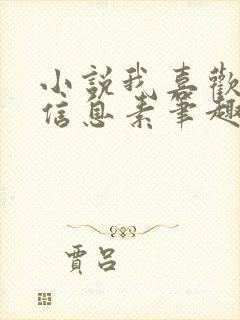 小説我喜歡
信息素筆趣
賈呂